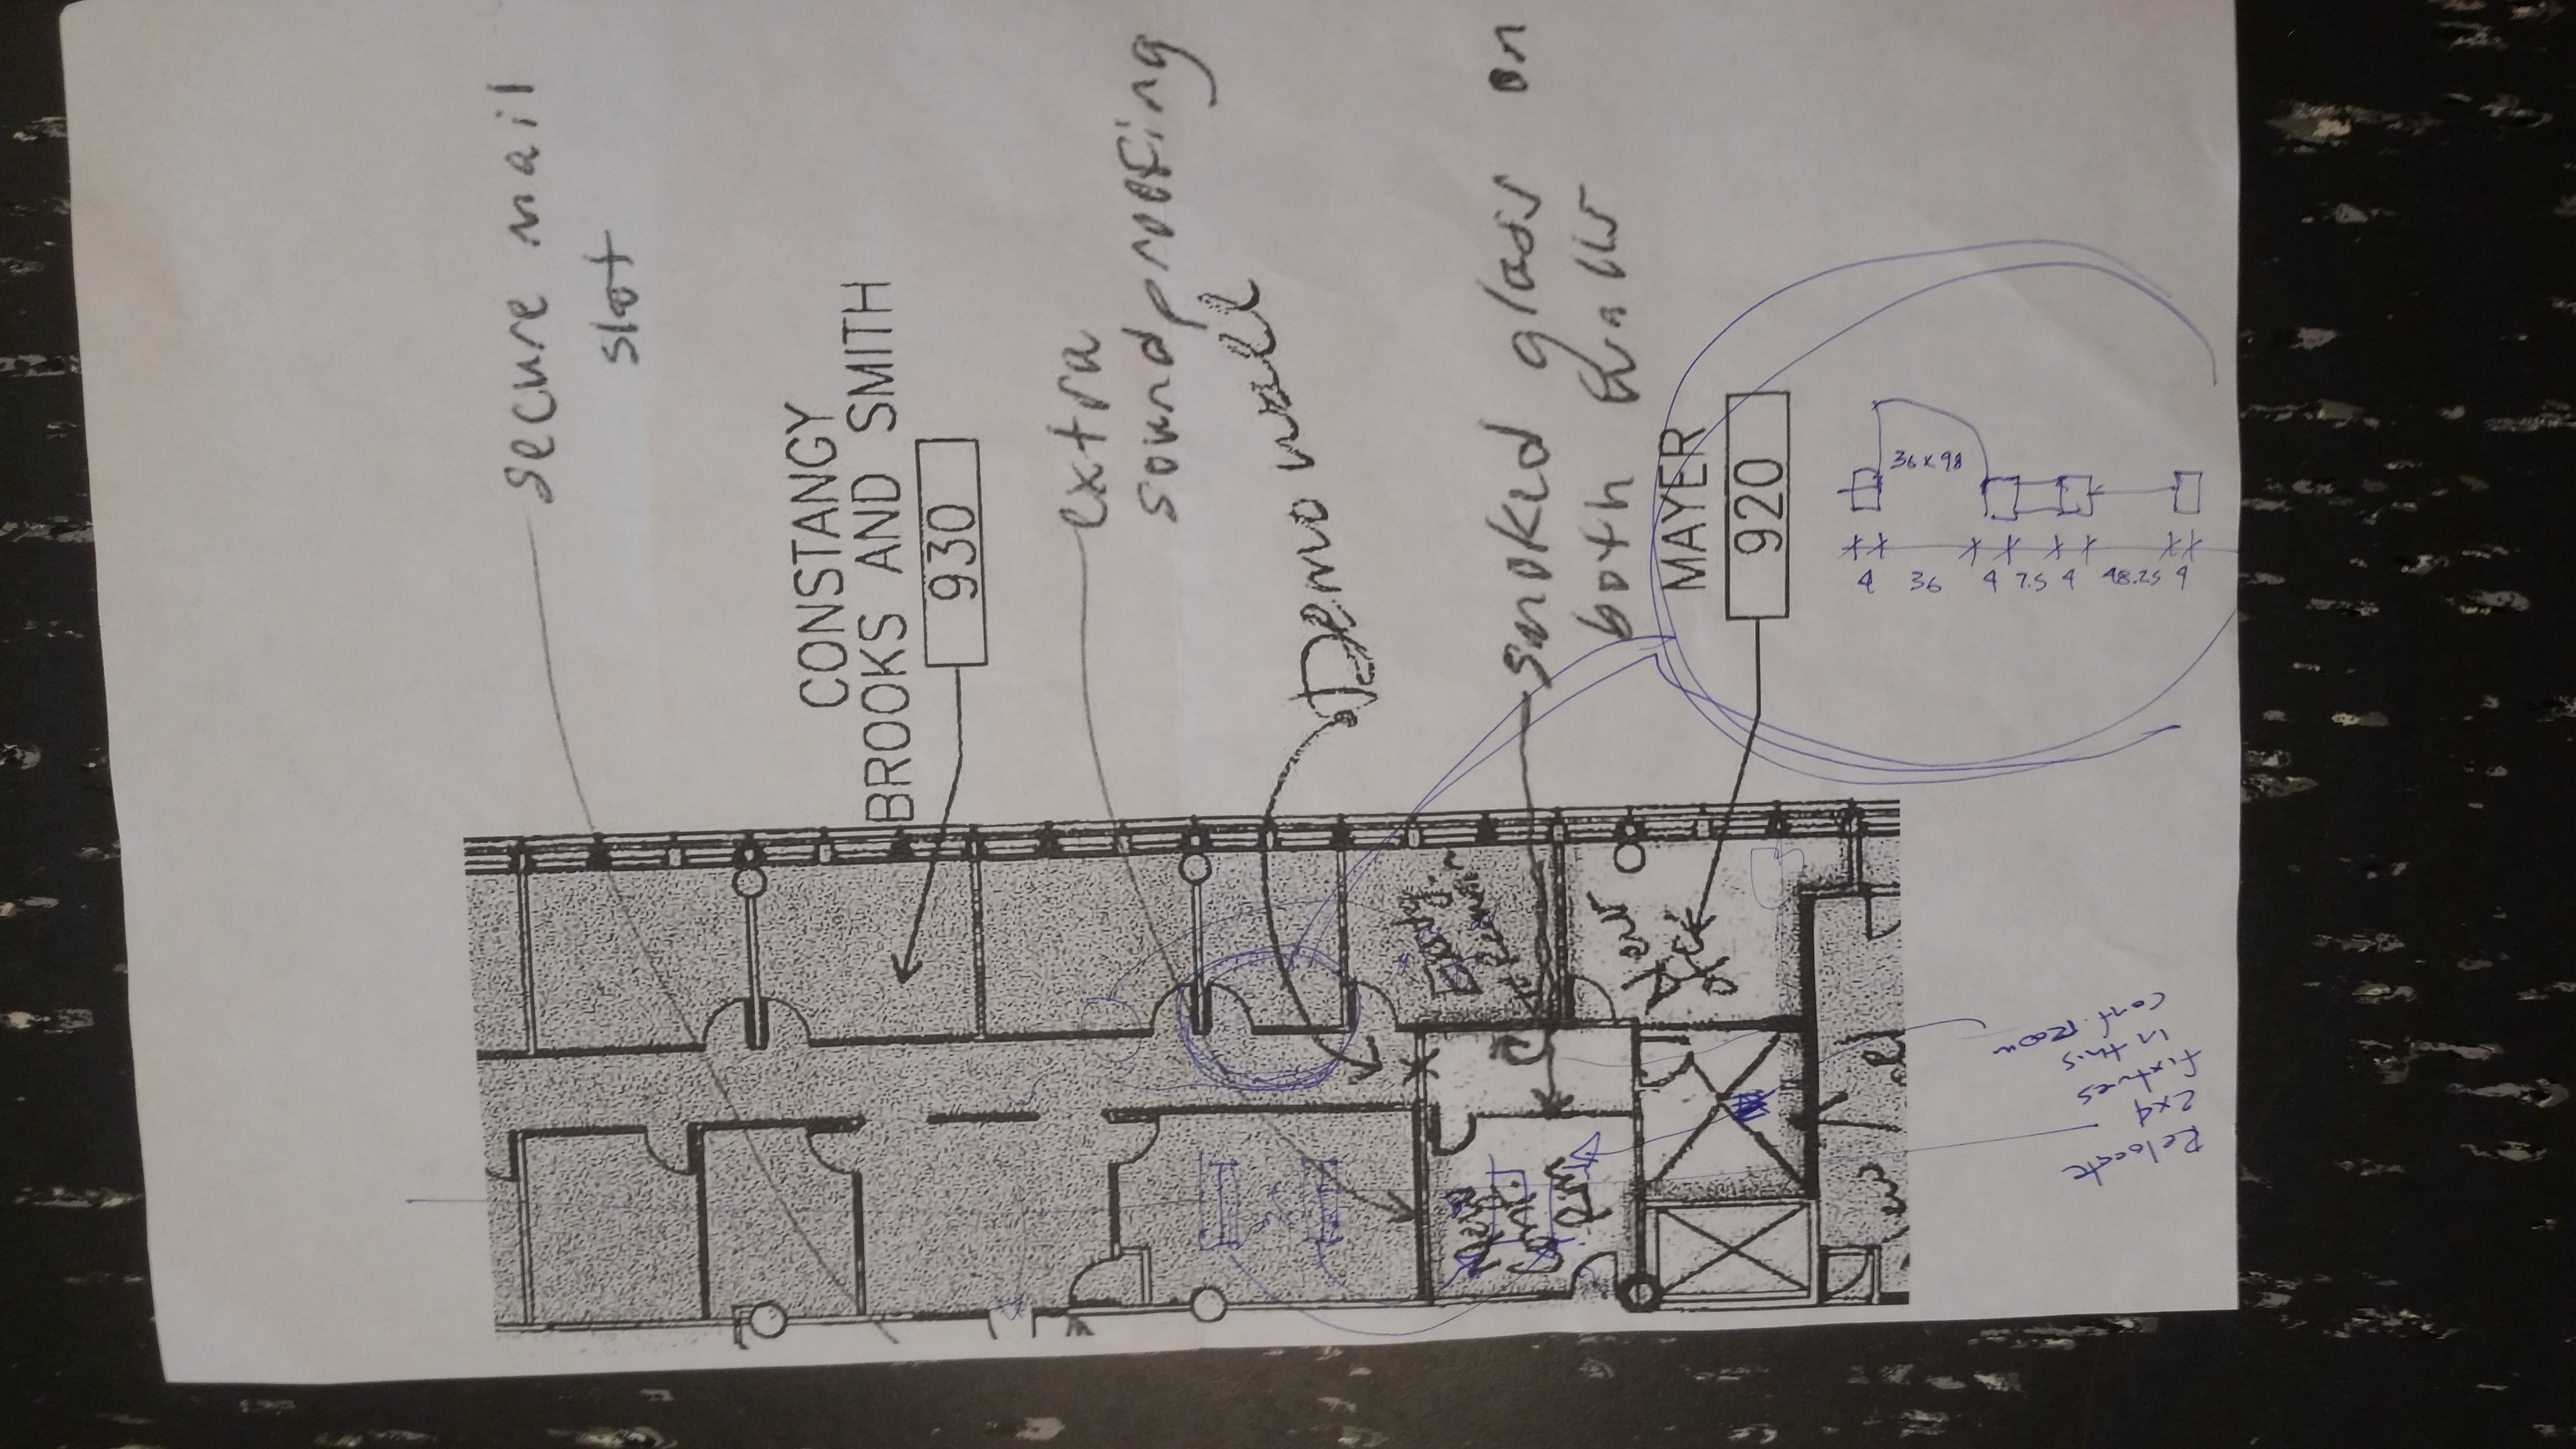 secure mail
slot
CONSTANGY
BROOKS AND SMITH
930
extra
sound proofing
Demo wall
smoked glass on
both
MAYER
920
36x98
4 36 4 7.5 4 48.25 4
New
Relocate
2x4
fixtures
in this
conf. Room